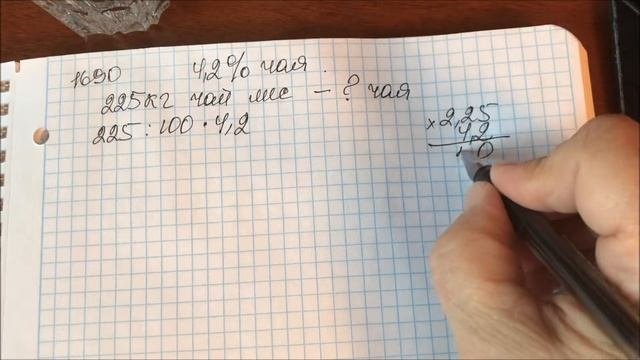 1690 4,2% чая
225кг чай лис – ? чая
225 : 100 · 4,2
× 2,25
4,2
0